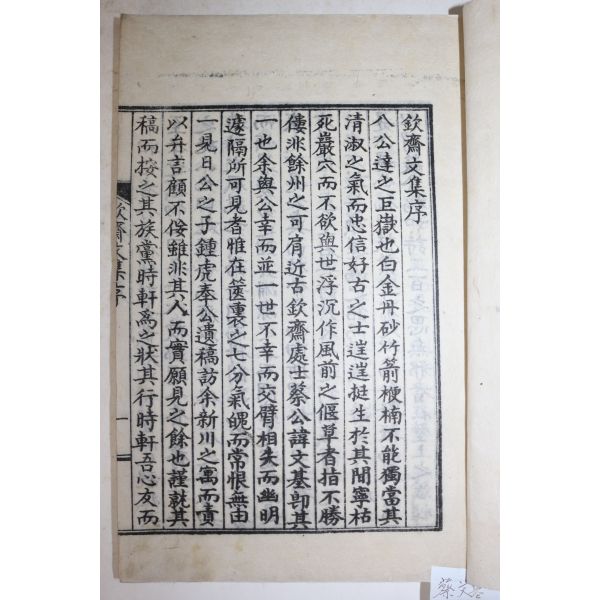 欽齋文集序
八公達之巨嶽也白金丹砂竹箭楩楠不能獨當其
清淑之氣而忠信好古之士逞逞挺生於其間寧枯
死巖穴而不欲與世浮沉作風前之偃草者指不勝
僂非餘州之可肩近古欽齋處士蔡公諱文基卽其
一也余與公幸而並一世不幸而交臂相失而幽明
遽隔所可見者惟在篋裏之七分氣魄而常恨無由
一見日公之子鍾虎奉公遺稿訪余新川之寓而責
以弁言顧不佞雖非其人而實願見之餘也謹就其
稿而按之其族黨時軒爲之狀其行時軒吾心友而
欽齋文集序
一
蔡文